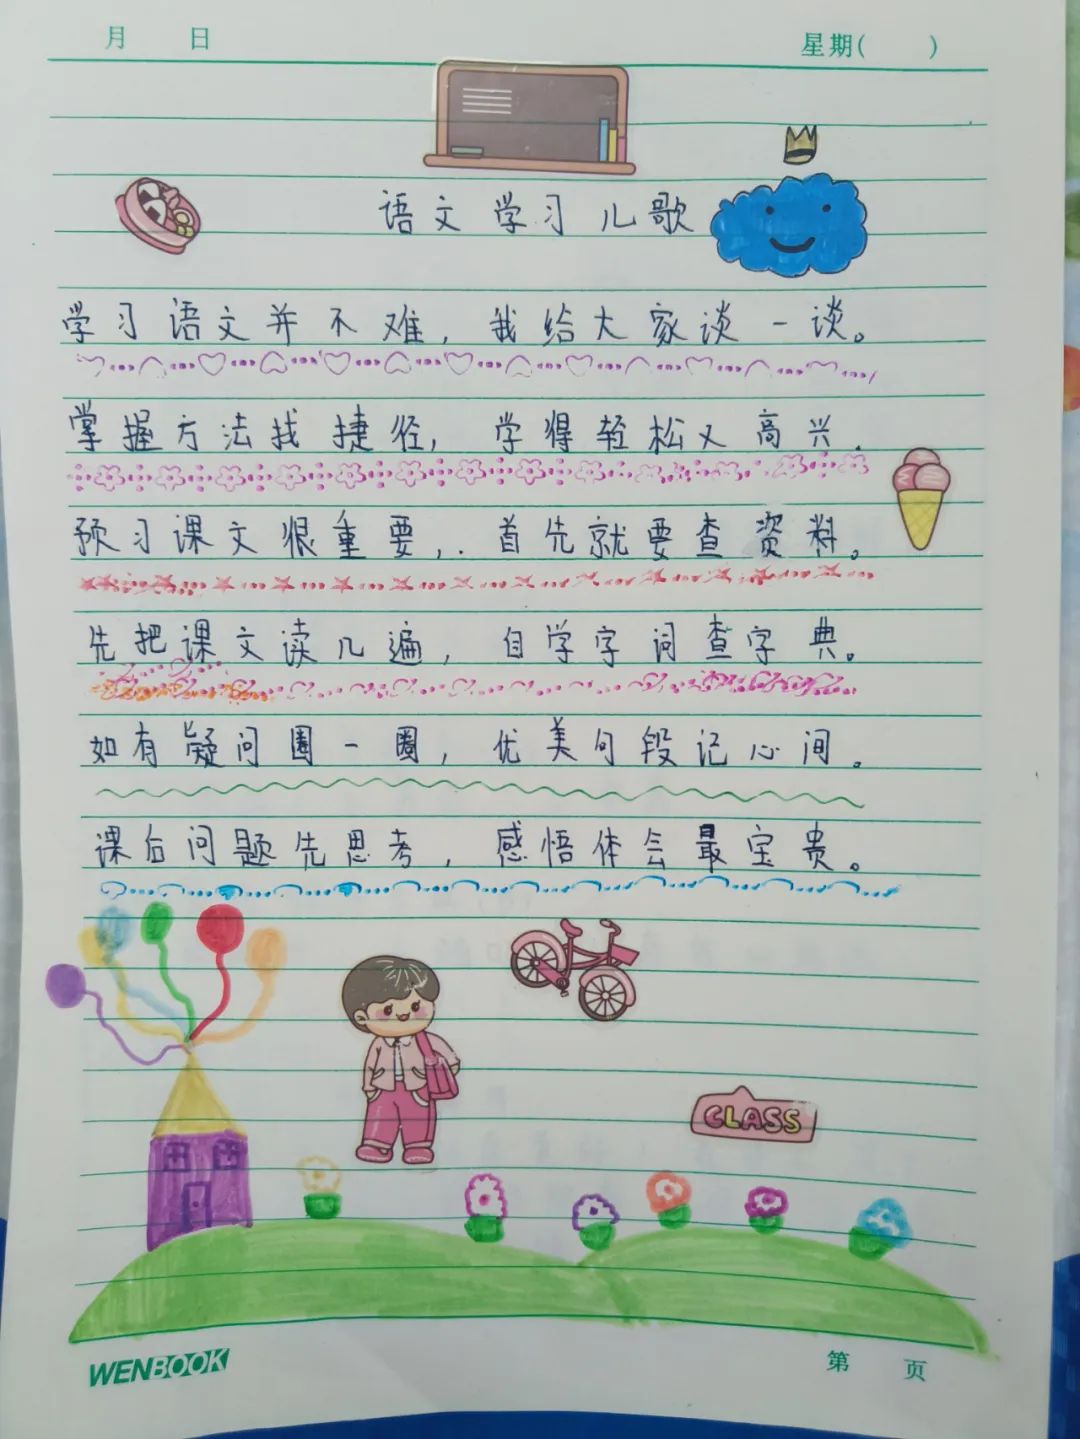 月 日 星期( )
语文学习儿歌
学习语文并不难，我给大家谈一谈。
掌握方法找捷径，学得轻松又高兴.
预习课文很重要，.首先就要查资料。
先把课文读几遍，自学字词查字典。
如有疑问圈一圈，优美句段记心间。
课后问题先思考，感悟体会最宝贵。
CLASS
WENBOOK 第 页